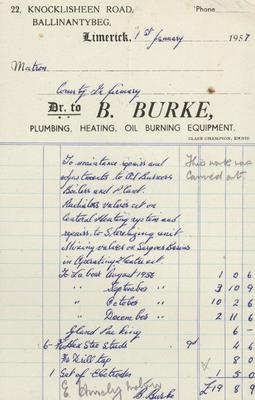 22, KNOCKLISHEEN ROAD,
BALLINANTYBEG,
'Phone
Limerick, 1st January 1957
Matron
County Infirmary
Dr. to B. BURKE,
PLUMBING, HEATING, OIL BURNING EQUIPMENT.
CLARE CHAMPION, ENNIS
To maintance repairs and
adjustments to Oil Burners
Boilers and Plant.
Radiators valves etc on
Central Heating system and
repairs to Sterelizing unit
Mixing valves on Surgeons Basins
in Operating Theatre etc.
This work was
carried out
To Labour August 1956 1 0 6
" " September " 3 10 9
" " October " 10 2 6
" " December " 2 11 6
Gland Packing 6 -
6 - Hex Stee Studs 9d 4 6
tap 8 0
1 Set of Electrodes 1 5 0
£19 8 9
B. Burke